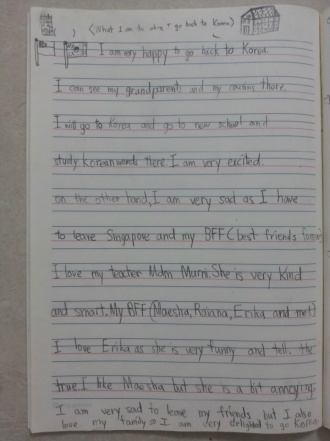 (What I am to when I go back to Korea)
I am very happy to go back to Korea.
I can see my grandparents and my cousins there.
I will go to Korea and go to new school and
study Korean words there I am very excited.
on the other hand, I am very sad as I have
to leave Singapore and my BFF (best friends forever)
I love my teacher Mdm Murni. She is very kind
and smart. My BFF (Maesha, Raiana, Erika and me)
I love Erika as she is very funny and tell the
true. I like Maesha but she is a bit annoying.
I am very sad to leave my friends but I also
love my family so I am very delighted to go Korea